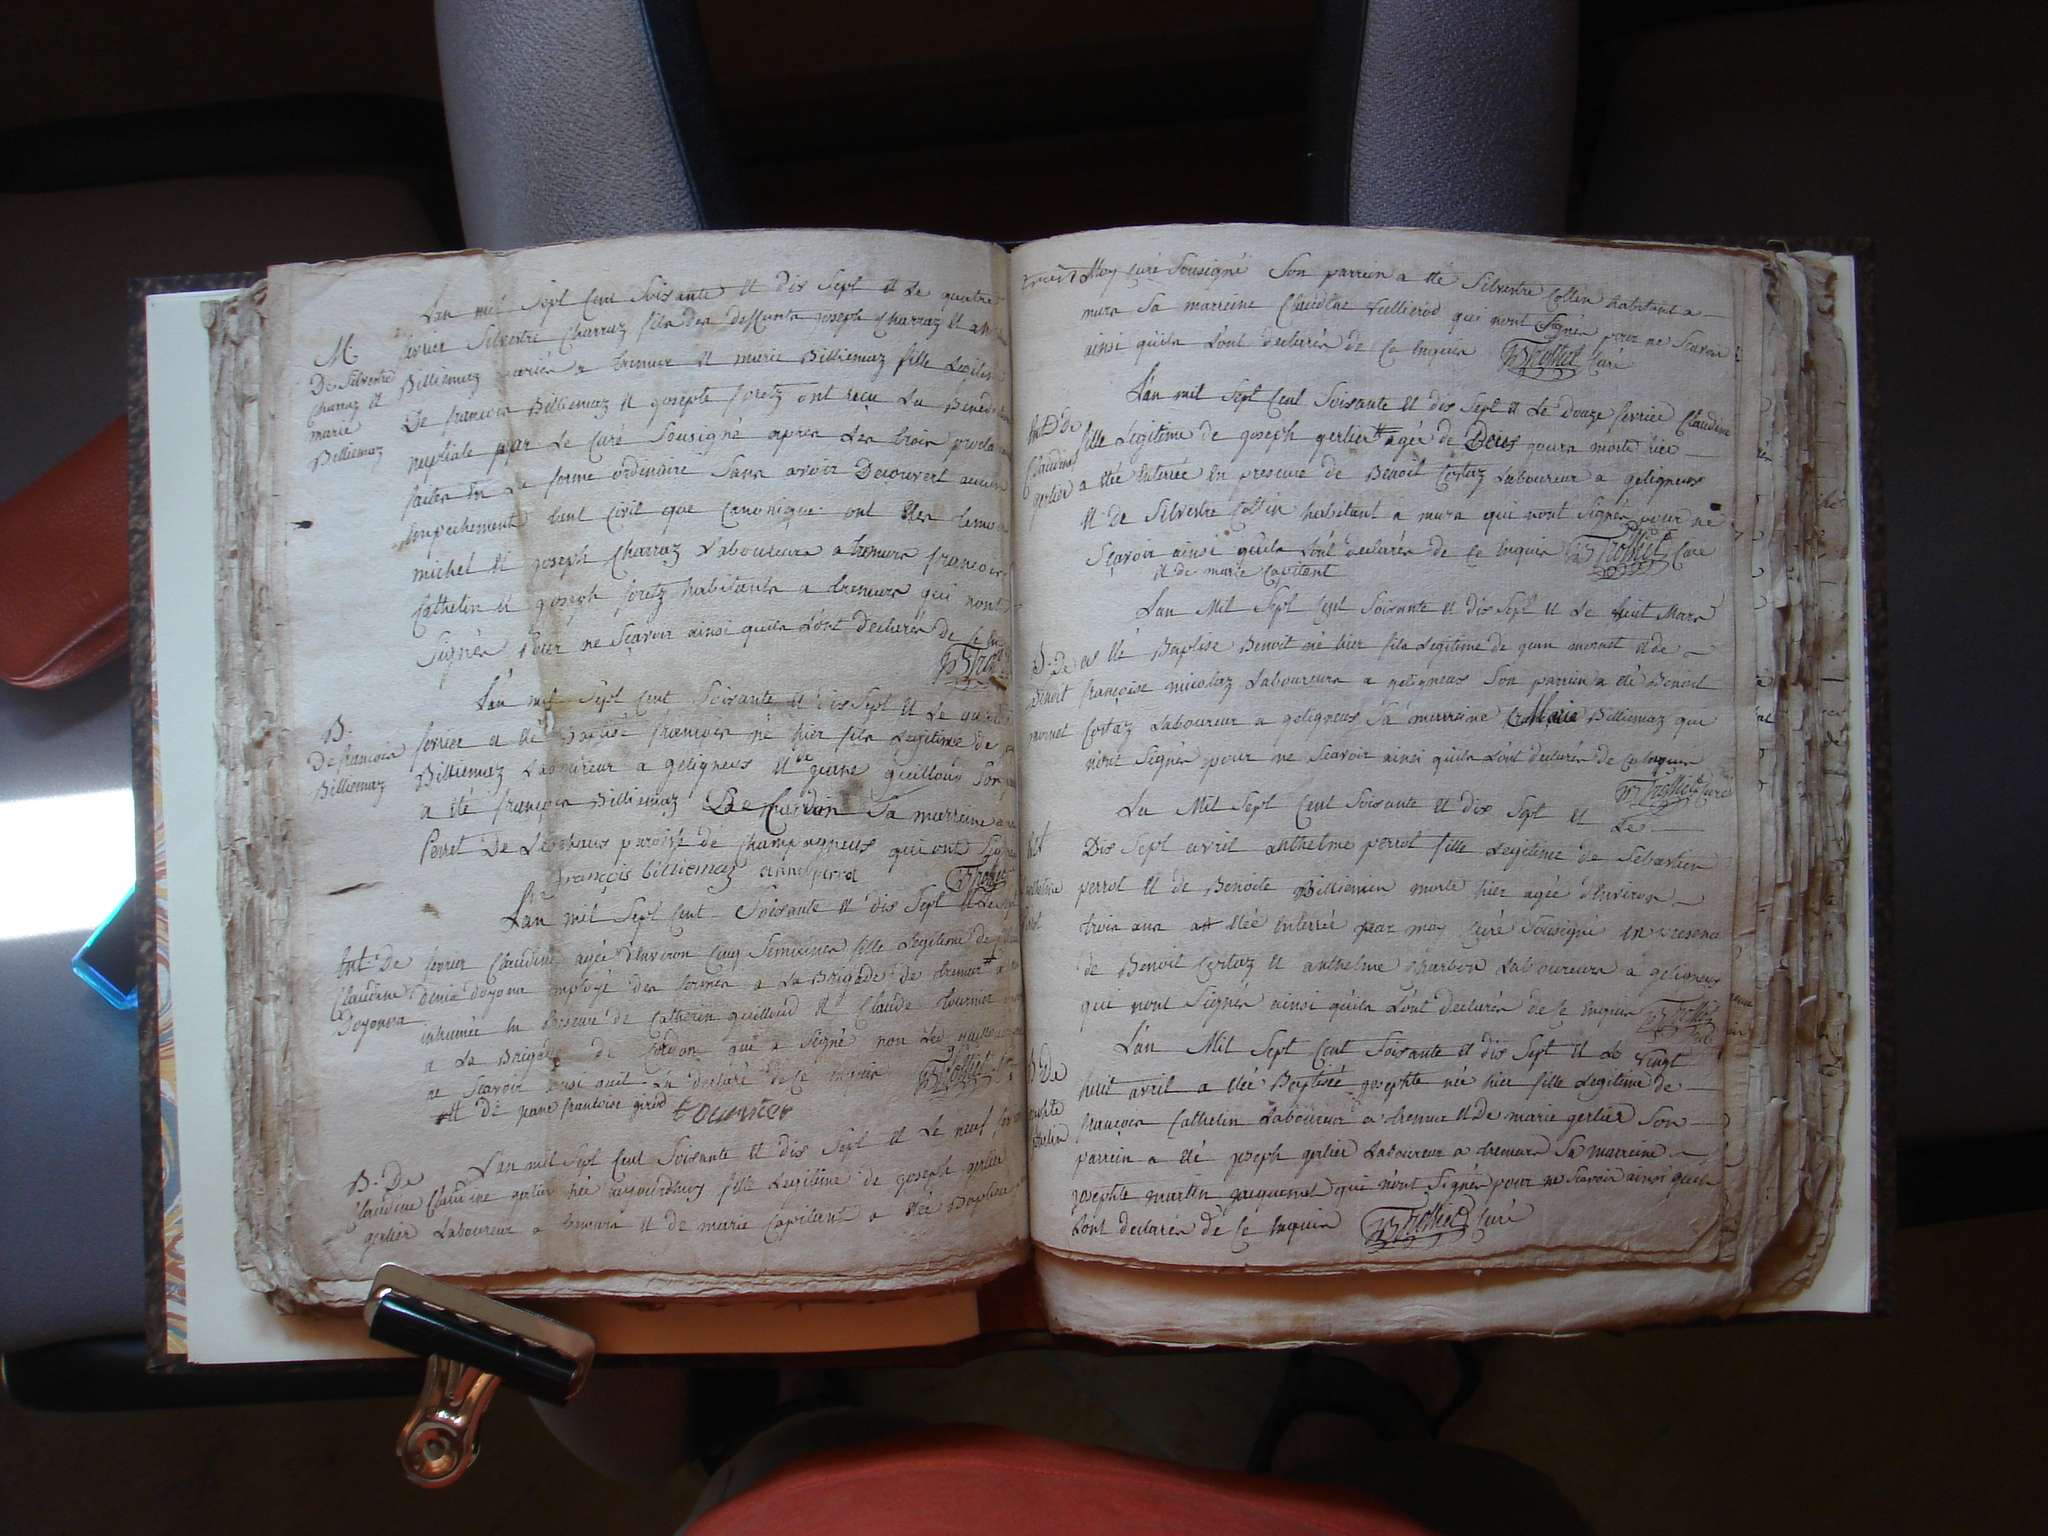 Lan mil Sept Cent Soisante et dix Sept et Le quatre
M.
De Silvestre
Charraz et
marie
Billiemaz
fevrier Silvestre Charraz fils des deffunts joseph Charraz et
Billiemaz a tremurs et marie Billiemaz fille Legit
De françois Billiemaz et josepte foretz ont reçu La Bened
nuptiale par Le Curé Sousigné apres Les trois procla
faites En La forme ordinaire Sans avoir Decouvert aucun
Empechement tant Civil que Canonique ont Etes temoins
michel et joseph Charraz Laboureurs a tremurs françois
Cathelin et joseph foretz habitants a tremurs qui n'ont
Signés pour ne Sçavoir ainsi quils L'ont declarés de Ce En
Lan mil Sept Cent Soisante et dix Sept et Le
B.
De francois
Billiemaz
fevrier a eté Baptisé françois né hier fils Legitime de
Billiemaz Laboureur a geligneus et de jeane guilloud Son
a eté françois Billiemaz De Cuardin Sa marreine
Perret De Leschaus paroisse de Champagneus qui ont Signé
françois billiemaz anne perret
Lan mil Sept Cent Soisante et dix Sept et Le
Ent. De
Claudine
Doyonna
fevrier Claudine agée d'Environ Cinq Semaines fille Legitime de
denis doyona Employé des fermes a La Brigade de tremur
inhumée En Presence de Catherin guilloud et Claude tournier
a La Brigade de Cordon qui a Signé non Led guilloud
ne Scavoir ainsi quil La declaré de Ce Enquis
et de jeane françoise girod tournier
B. De
Claudine
gerlier
Lan mil Sept Cent Soisante et dix Sept et Le neuf fev
Claudine gerlier née aujourdhuy fille Legitime de joseph gerlier
Laboureur a tremurs et de marie Capitant a etée Baptisée
Moy Curé Sousigné Son parrein a eté Silvestre Collin habitant a
murs Sa marreine Claudine Vullierod qui n'ont Signés pour ne Scavoir
ainsi quils L'ont declarés de Ce Enquis Trolliet Curé
Lan mil Sept Cent Soisante et dix Sept et Le douze fevrier Claudine
Ent. de
Claudine
gerlier
fille Legitime de joseph gerlier agée de Deus jours morte hier
a etée Enterrée En presence de Benoit Cortaz Laboureur a geligneus
et de Silvestre Collin habitant a murs qui n'ont Signés pour ne
Sçavoir ainsi quils L'ont declarés de Ce Enquis Trolliet Curé
et de marie Capitant
Lan Mil Sept Cent Soisante et dix Sept et Le huit Mars
B. De
Benoit
mornet
as eté Baptise Benoit né hier fils Legitime de jean mornet et de
françoise micolaz Laboureurs a geligneus Son parrein a eté Benoit
Cortaz Laboureur a geligneus Sa marreine Marie Billiemaz qui
n'ont Signés pour ne Scavoir ainsi quils L'ont declarés de Ce Enquis
Trolliet Curé
Lan Mil Sept Cent Soisante et dix Sept et Le
Dix Sept avril anthelme perrot fille Legitime de Sebastien
perrot et de Benoite Billiemin morte hier agée d'Environ
trois ans a etée Enterrée par moy Curé Sousigné en presence
de Benoit Cortaz et anthelme Charbon Laboureurs a geligneus
qui n'ont Signés ainsi quils L'ont declarés de Ce Enquis Trolliet
Lan Mil Sept Cent Soisante et dix Sept et Le Vingt
huit avril a etée Baptisée josephte née hier fille Legitime de
françois Cathelin Laboureur a tremur et de marie gerlier Son
parrein a eté joseph gerlier Laboureur a tremurs Sa marreine
josephte martin jacquemet qui n'ont Signés pour ne Scavoir ainsi quils
L'ont declarés de Ce Enquis Trolliet Curé